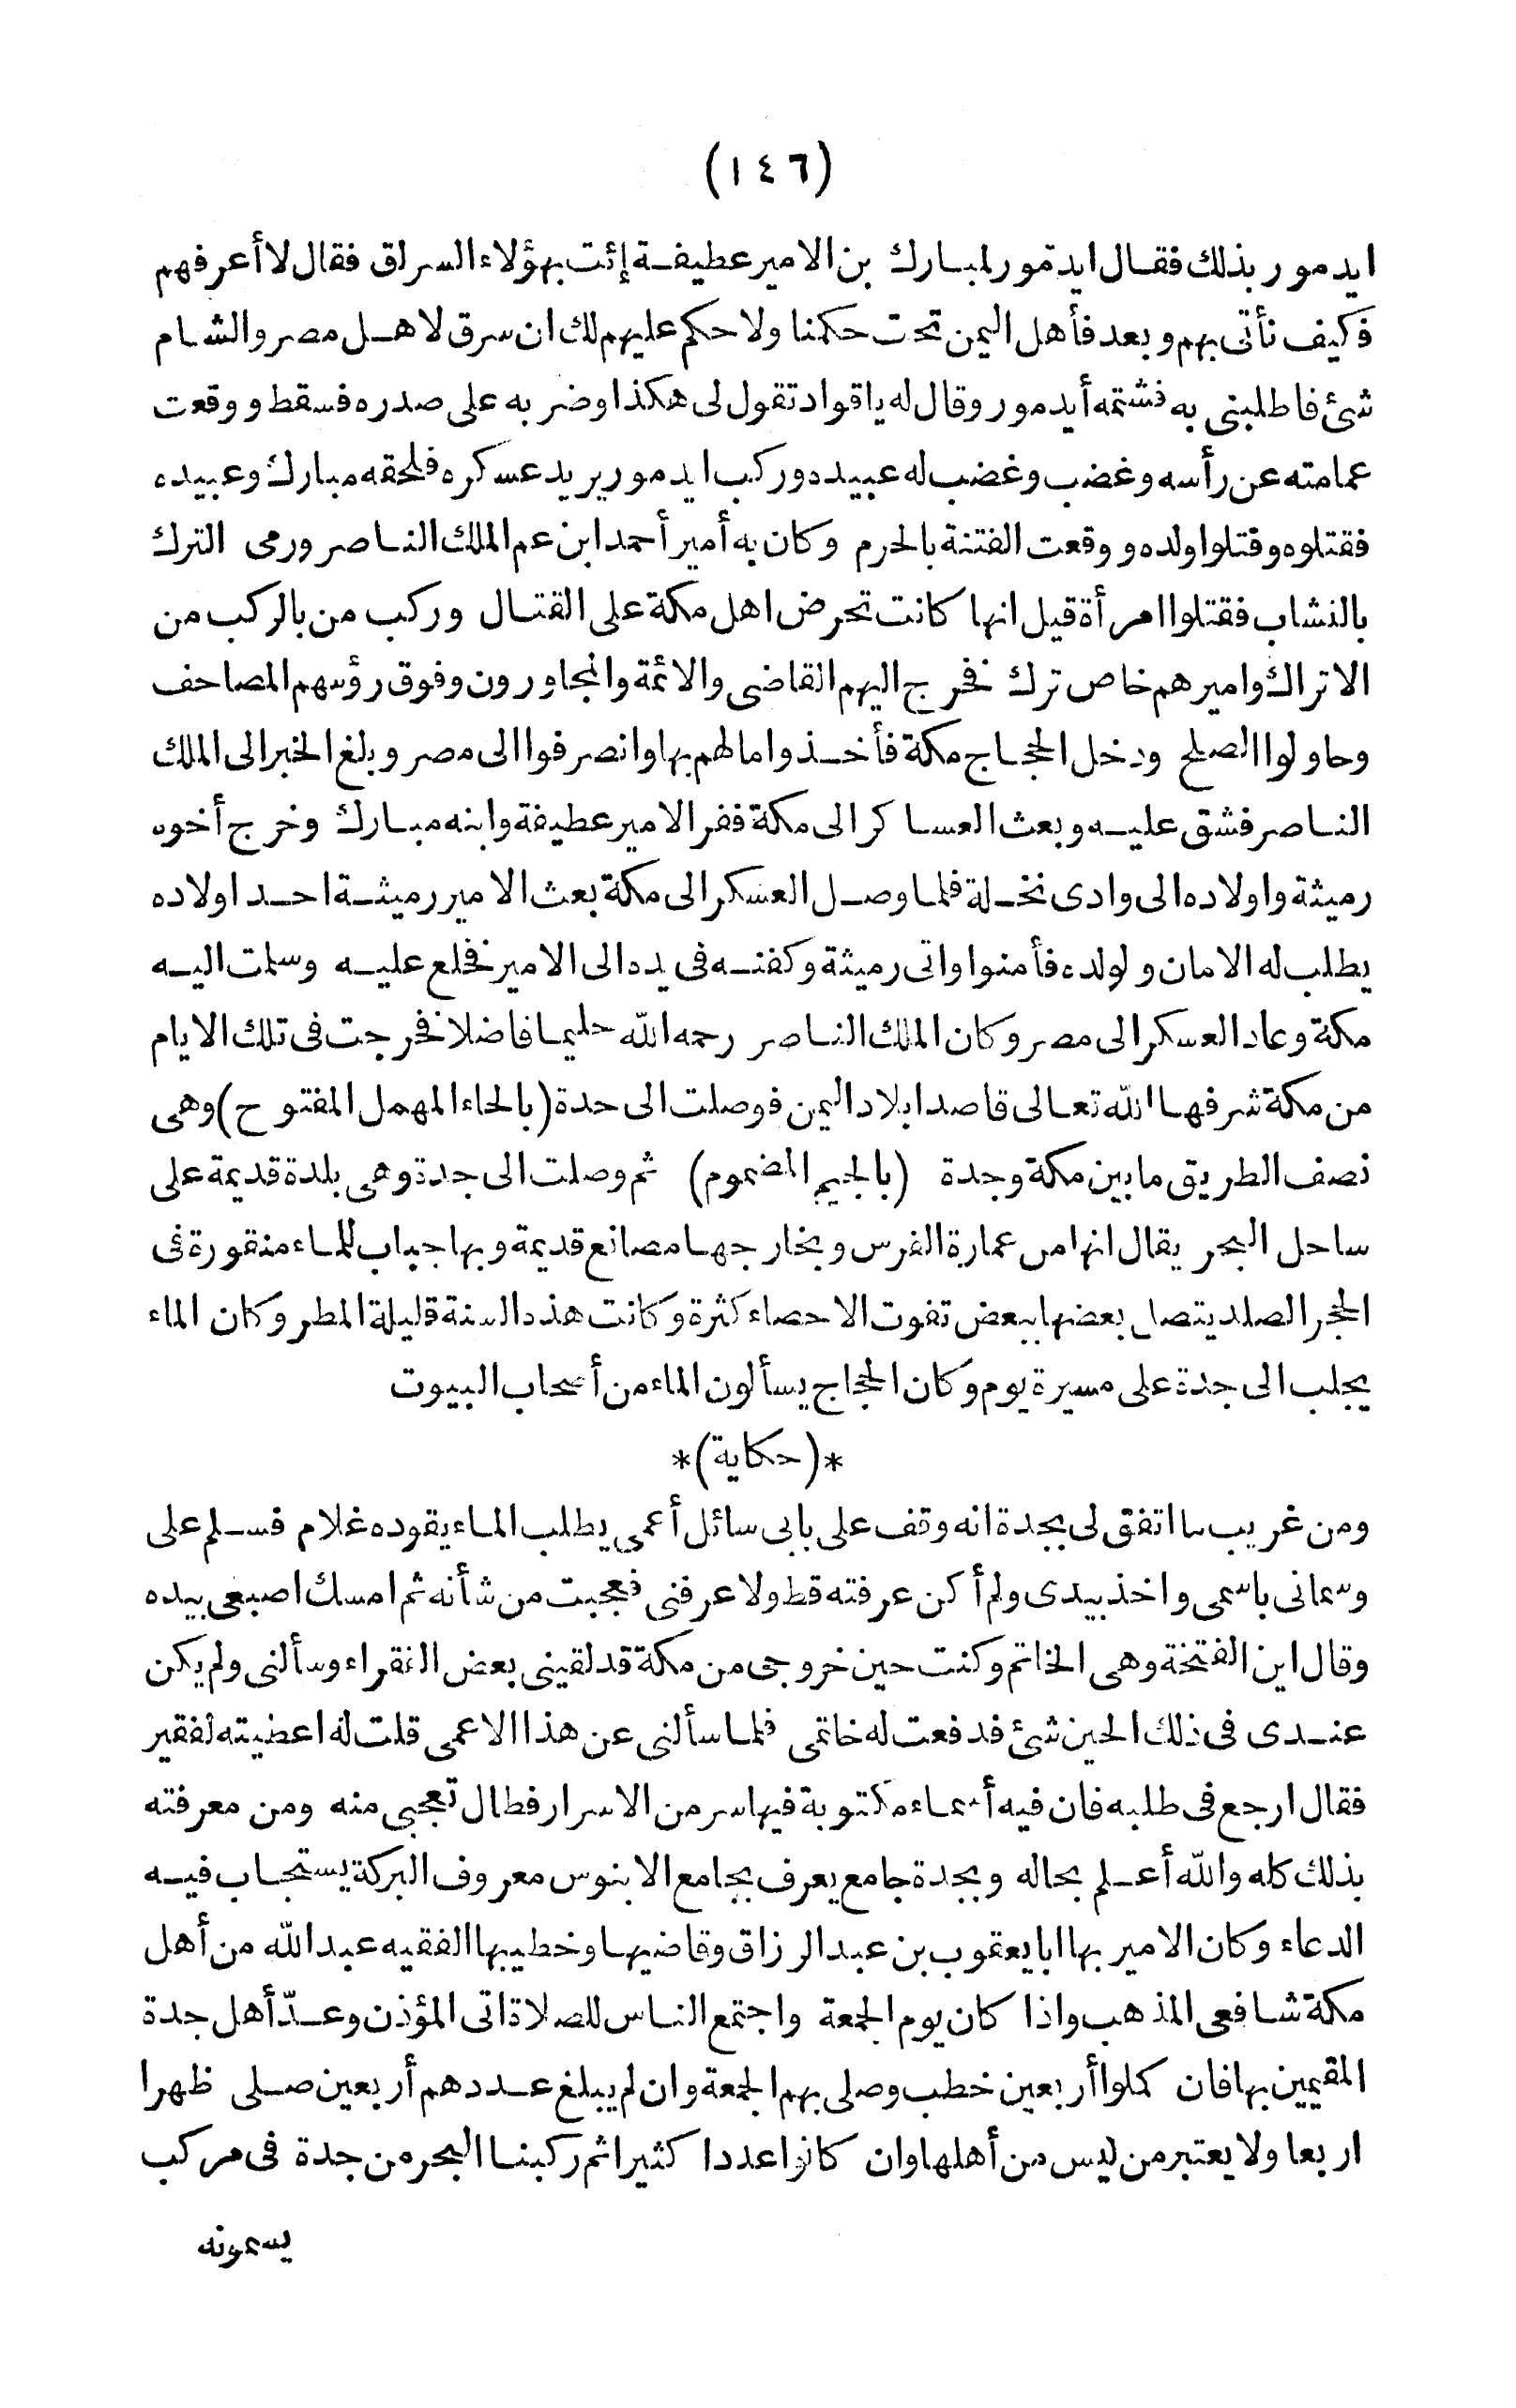 (١٤٦)
ايدمور بذلك فقال ايدمور لمبارك بن الامير عطيفة إئت بهؤلاء السراق فقال لا أعرفهم
فكيف نأتى بهم وبعد فأهل اليمن تحت حكمنا ولا حكم عليهم لك ان سرق لاهل مصر والشام
شئ فاطلبنى به فشتمه أيدمور وقال له ياقواد تقول لى هكذا وضربه على صدره فسقط ووقعت
عمامته عن رأسه وغضب وغضب له عبيده وركب ايدمور يريد عسكره فلحقه مبارك وعبيده
فقتلوه وقتلوا ولده ووقعت الفتنة بالحرم وكان به أمير أحمد ابن عم الملك الناصر ورمى الترك
بالنشاب فقتلوا امرأة قيل انها كانت تحرض اهل مكة على القتال وركب من بالركب من
الاتراك واميرهم خاص ترك فخرج اليهم القاضى والائمة والمجاورون وفوق رؤسهم المصاحف
وحاولوا الصلح ودخل الحجاج مكة فأخذوا مالهم بها وانصرفوا الى مصر وبلغ الخبر الى الملك
الناصر فشق عليه وبعث العساكر الى مكة ففر الامير عطيفة وابنه مبارك وخرج أخوه
رميثة واولاده الى وادى نخلة فلما وصل العسكر الى مكة بعث الامير رميثة احد اولاده
يطلب له الامان ولولده فأمنوا واتى رميثة وكفنه فى يده الى الامير فخلع عليه وسلمت اليه
مكة وعاد العسكر الى مصر وكان الملك الناصر رحمه الله حليما فاضلا فخرجت فى تلك الايام
من مكة شرفها الله تعالى قاصدا بلاد اليمن فوصلت الى حدة (بالحاء المهمل المفتوح) وهى
نصف الطريق ما بين مكة وجدة (بالجيم المضموم) ثم وصلت الى جدة وهى بلدة قديمة على
ساحل البحر يقال انها من عمارة الفرس وبخارجها مصانع قديمة وبها جباب للماء منقورة فى
الحجر الصلد يتصل بعضها ببعض تفوت الاحصاء كثرة وكانت هذه السنة قليلة المطر وكان الماء
يجلب الى جدة على مسيرة يوم وكان الحجاج يسألون الماء من أصحاب البيوت
*(حكاية)*
ومن غريب ما اتفق لى بجدة انه وقف على بابى سائل أعمى يطلب الماء يقوده غلام فسلم على
وسمانى باسمى واخذ بيدى ولم أكن عرفته قط ولا عرفنى فعجبت من شأنه ثم امسك اصبعى بيده
وقال اين الفتخة وهى الخاتم وكنت حين خروجى من مكة قد لقينى بعض الفقراء وسألنى ولم يكن
عندى فى ذلك الحين شئ فدفعت له خاتمى فلما سألنى عن هذا الاعمى قلت له اعطيته لفقير
فقال ارجع فى طلبه فان فيه أسماء مكتوبة فيها سر من الاسرار فطال تعجبى منه ومن معرفته
بذلك كله والله أعلم بحاله وبجدة جامع يعرف بجامع الابنوس معروف البركة يستجاب فيه
الدعاء وكان الامير بها ابا يعقوب بن عبد الرزاق وقاضيها وخطيبها الفقيه عبد الله من أهل
مكة شافعى المذهب واذا كان يوم الجمعة واجتمع الناس للصلاة اتى المؤذن وعدّ أهل جدة
المقيمين بها فان كملوا أربعين خطب وصلى بهم الجمعة وان لم يبلغ عددهم أربعين صلى ظهرا
اربعا ولا يعتبر من ليس من أهلها وان كانوا عددا كثيرا ثم ركبنا البحر من جدة فى مركب
يسمونه